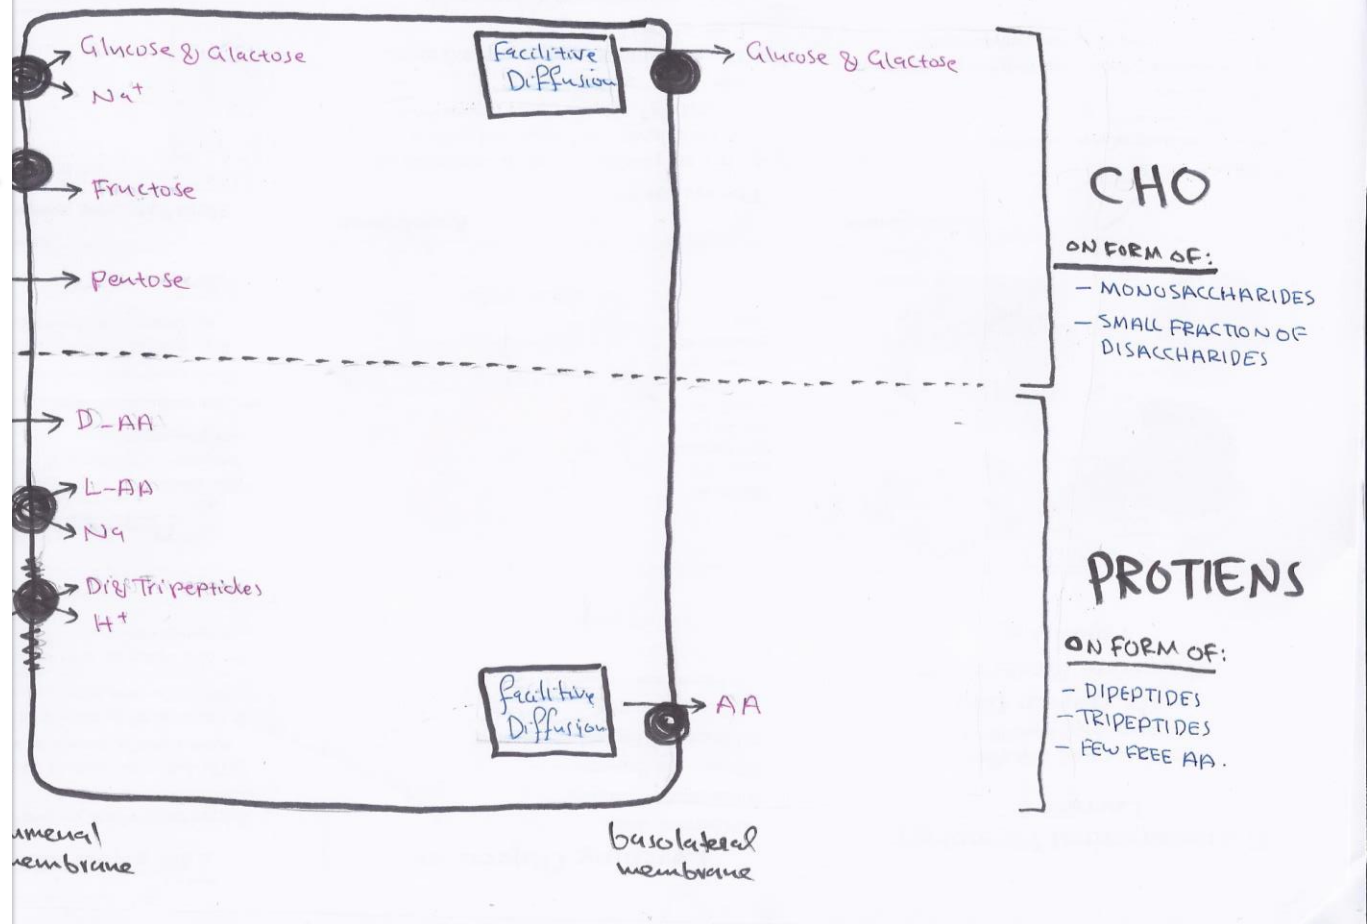 Glucose & Glactose
Na+
Fructose
Pentose
D-AA
L-AA
Na
Di & Tripeptides
H+
Facilitive
Diffusion
Glucose & Glactose
facilitive
Diffusion
AA
umenal
membrane
basolateral
membrane
CHO
ON FORM OF:
- MONOSACCHARIDES
- SMALL FRACTION OF
DISACCHARIDES
PROTIENS
ON FORM OF:
- DIPEPTIDES
- TRIPEPTIDES
- FEW FREE AA.